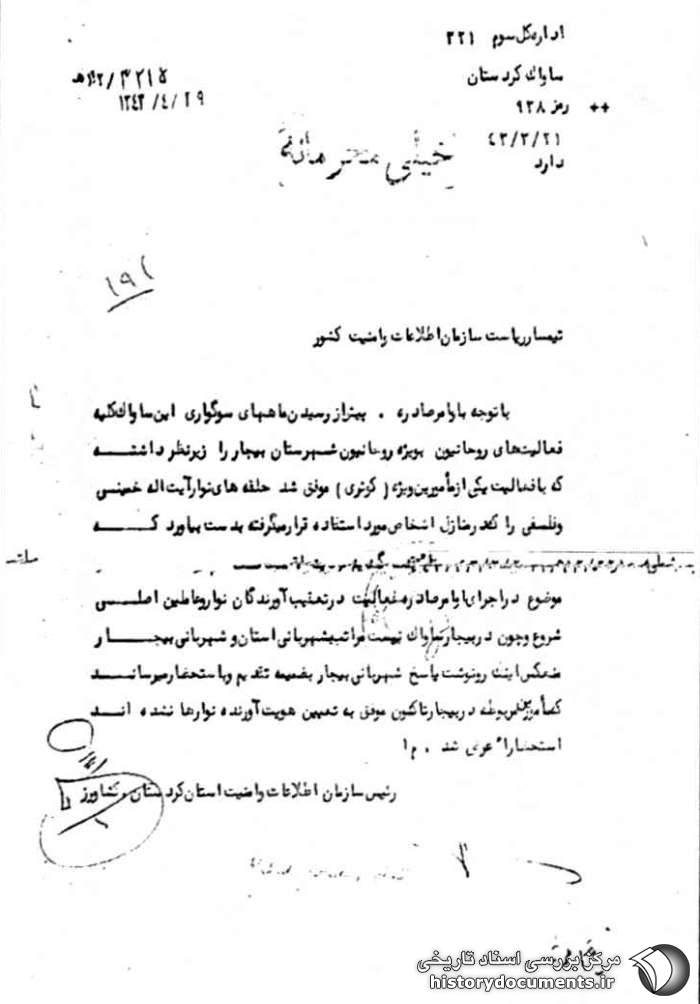 اداره کل سوم ۳۲۱
ساواک کردستان
رمز ۹۲۸ ++
۴۳/۳/۲۱
دارد
۱۳۴۳/۴/۲۹
خیلی محرمانه
۱۹۱
تیمسار ریاست سازمان اطلاعات و امنیت کشور
با توجه باوامر صادره . پیش از رسیدن ماههای سوگواری این ساواک کلیه
فعالیت‌های روحانیون بویژه روحانیون شهرستان بیجار را زیر نظر داشته
که با فعالیت یکی از مأمورین ویژه ( کوثری ) موفق شد حلقه های نوار آیت اله خمینی
و فلسفی را که در منازل اشخاص مورد استفاده قرار میگرفته بدست بیاورد که
موضوع در اجرای اوامر صادره فعالیت در تعقیب آورندگان نوار و عاملین اصلی
شروع و چون در بیجار ساواک نیست مراتب بشهربانی استان و شهربانی بیجار
منعکس اینک رونوشت پاسخ شهربانی بیجار بضمیمه تقدیم و باستحضار میرساند
که مأمورین مربوطه در بیجار تا کنون موفق به تعیین هویت آورنده نوارها نشده اند
استحضاراً عرض شد . م ا
رئیس سازمان اطلاعات و امنیت استان کردستان کشاورز
مرکز بررسی اسناد تاریخی
historydocuments.ir